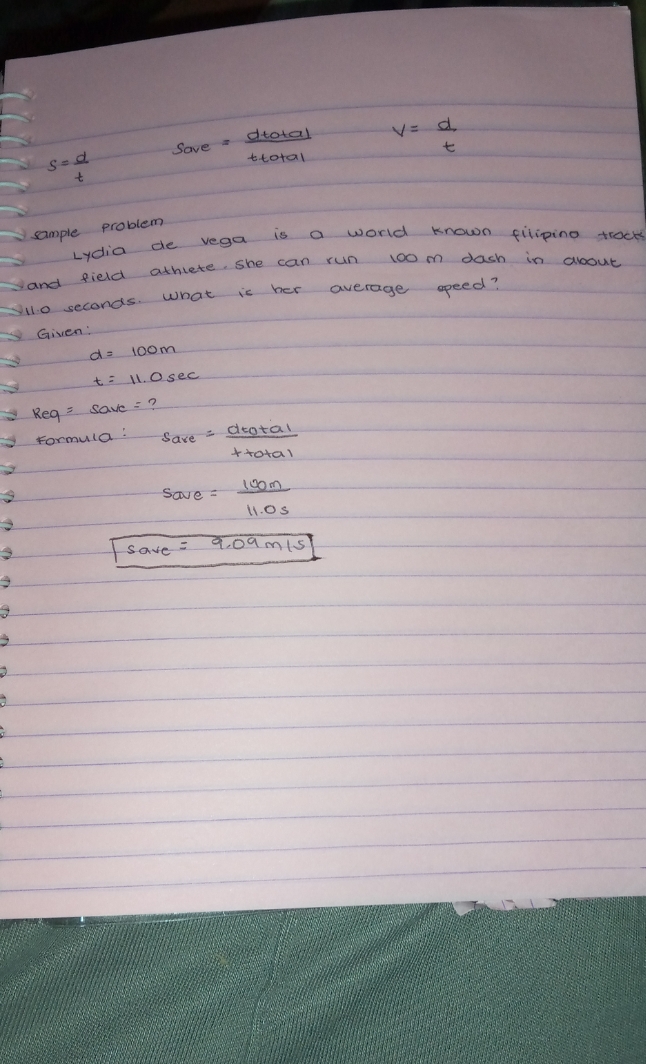 s = d/t    Save = dtotal/ttotal    V = d/t
sample problem
Lydia de vega is a world known filipino track
and field athlete. she can run 100 m dash in about
11.0 seconds. what is her average speed?
Given:
d = 100m
t = 11.0 sec
Req = save = ?
Formula: Save = dtotal/ttotal
Save = 100m/11.0s
Save = 9.09m/s